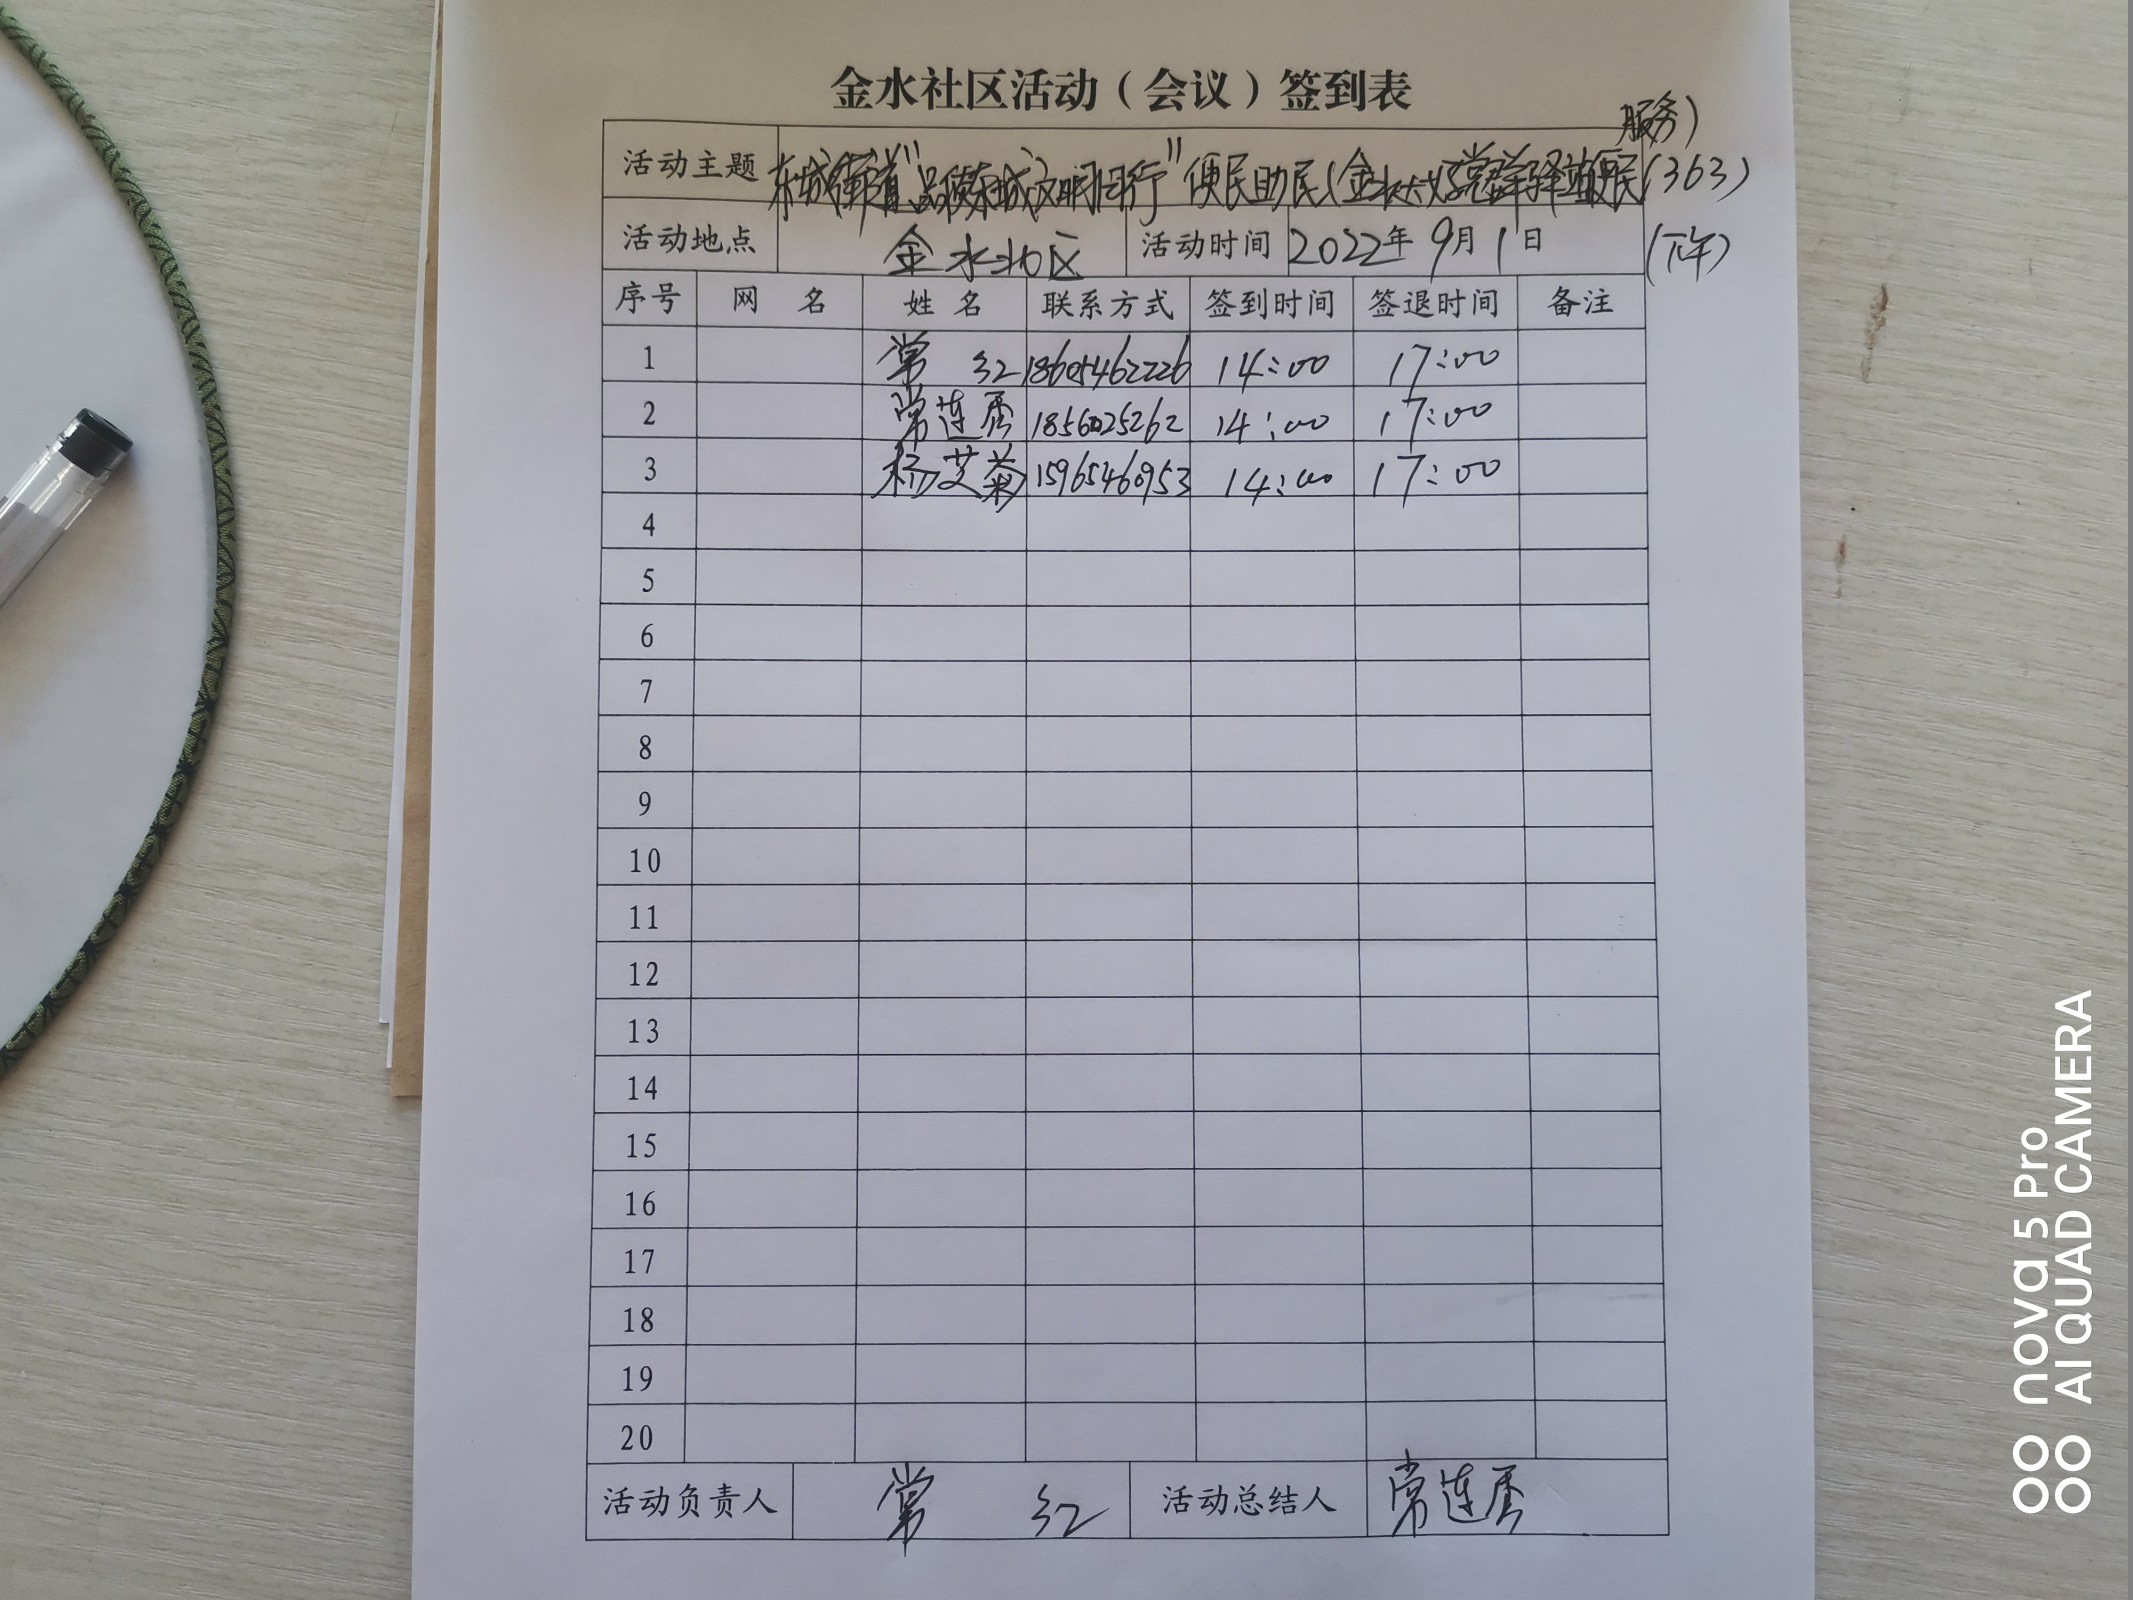 金水社区活动（会议）签到表
服务）
活动主题 东城街道"品质东城文明同行"便民助民（金水社区党群驿站便民 (363)
活动地点 金水北区 活动时间 2022年 9月 1日 (下午)
序号 网 名 姓 名 联系方式 签到时间 签退时间 备注
1 常 红 18605462226 14:00 17:00
2 常连秀 14:00 17:00
3 杨艾菊 15965460953 14:00 17:00
4
5
6
7
8
9
10
11
12
13
14
15
16
17
18
19
20
活动负责人 常 红 活动总结人 常连秀
nova 5 Pro
AI QUAD CAMERA